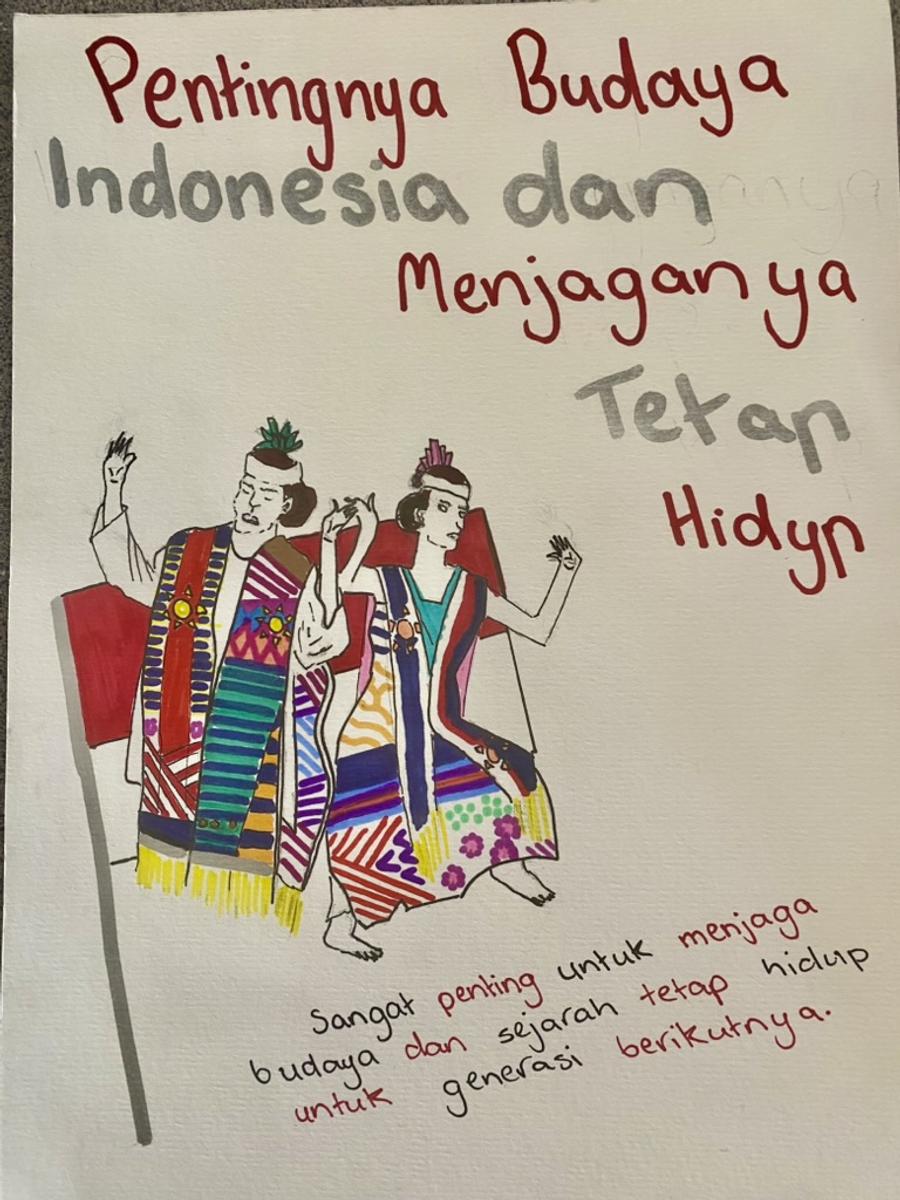 Pentingnya Budaya
Indonesia dan
Menjaganya
Tetap
Hidyp
Sangat penting untuk menjaga
budaya dan sejarah tetap hidup
untuk generasi berikutnya.